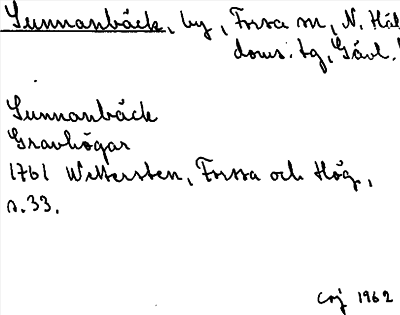 Sunnanbäck, by, Forsa sn, N. Häl
doms. tg, Gävl.
Sunnanbäck
Gravhögar
1761 Wettersten, Forssa och Hög,
s. 33.
1962